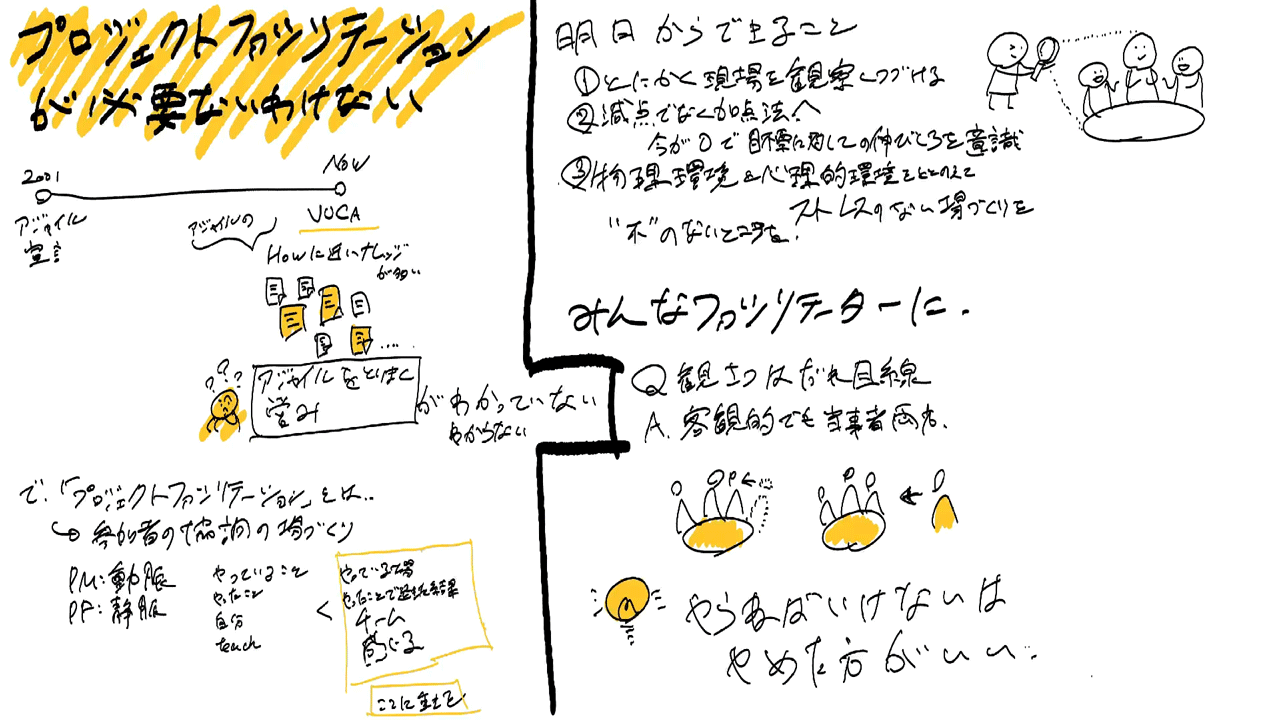 プロジェクトファシリテーション
が必要ないわけない
2001
Now
アジャイル
宣言
VUCA
アジャイルの
Howに近いナレッジ
が多い
???
.....
アジャイルをとりまく
営み
がわかっていない
わからない
で、「プロジェクトファシリテーション」とは...
↳ 参加者の協調の場づくり
PM:動脈
PF:静脈
やっていること
やったこと
自分
teach
<
やっている場
やったことで起きた結果
チーム
感じる
ここに重きを
明日からできること
①とにかく現場を観察しつづける
②減点でなく加点法へ
今が0で目標に対しての伸びしろを意識
③物理環境&心理的環境をととのえて
ストレスのない場づくりを
"不"のないところを.
みんなファシリテーターに.
Q 観るつはだれ目線
A. 客観的でも当事者両方.
やらねばいけないは
やめた方がいい..